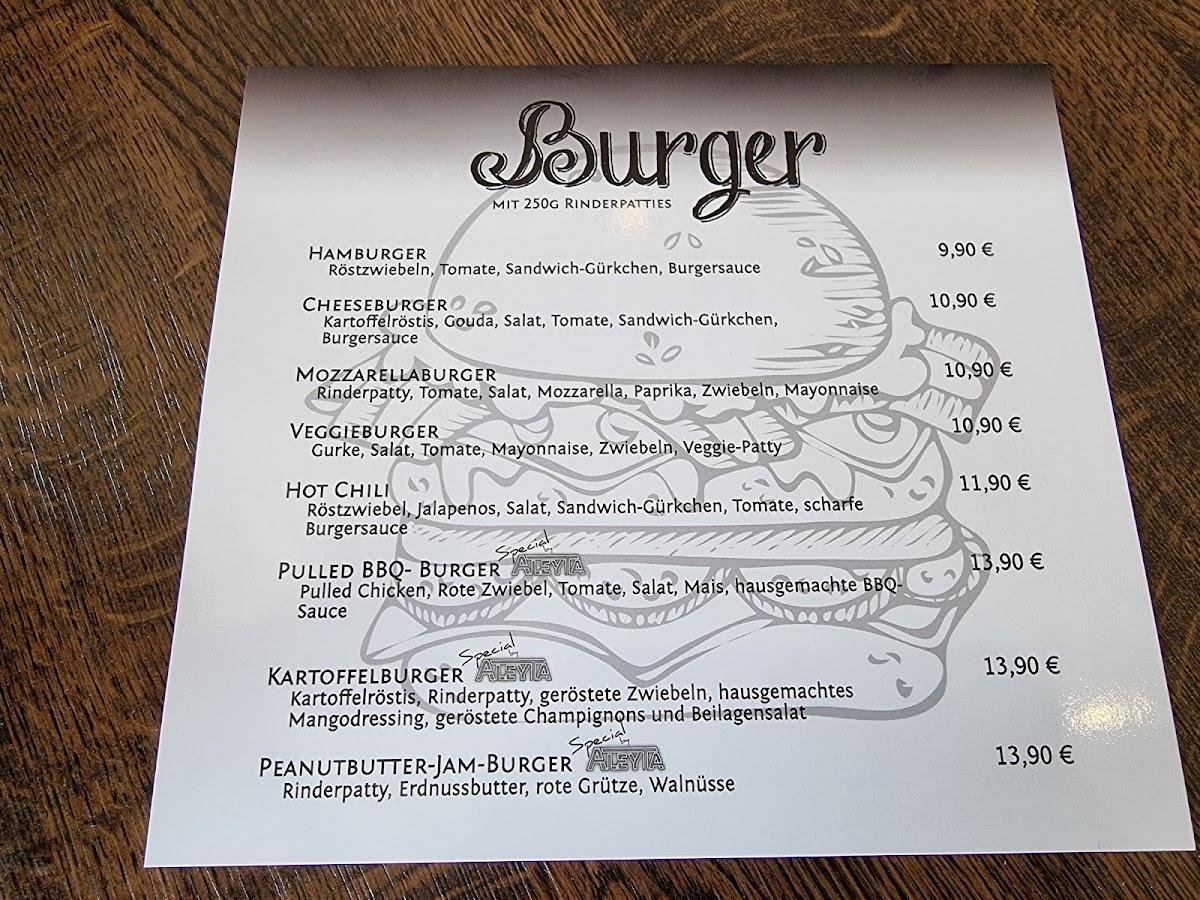 Burger
MIT 250G RINDERPATTIES
HAMBURGER 9,90 €
Röstzwiebeln, Tomate, Sandwich-Gürkchen, Burgersauce
CHEESEBURGER 10,90 €
Kartoffelröstis, Gouda, Salat, Tomate, Sandwich-Gürkchen,
Burgersauce
MOZZARELLABURGER 10,90 €
Rinderpatty, Tomate, Salat, Mozzarella, Paprika, Zwiebeln, Mayonnaise
VEGGIEBURGER 10,90 €
Gurke, Salat, Tomate, Mayonnaise, Zwiebeln, Veggie-Patty
HOT CHILI 11,90 €
Röstzwiebel, Jalapenos, Salat, Sandwich-Gürkchen, Tomate, scharfe
Burgersauce
Special by
PULLED BBQ- BURGER ALEYTA 13,90 €
Pulled Chicken, Rote Zwiebel, Tomate, Salat, Mais, hausgemachte BBQ-
Sauce
Special by
KARTOFFELBURGER ALEYTA 13,90 €
Kartoffelröstis, Rinderpatty, geröstete Zwiebeln, hausgemachtes
Mangodressing, geröstete Champignons und Beilagensalat
Special by
PEANUTBUTTER-JAM-BURGER ALEYTA 13,90 €
Rinderpatty, Erdnussbutter, rote Grütze, Walnüsse